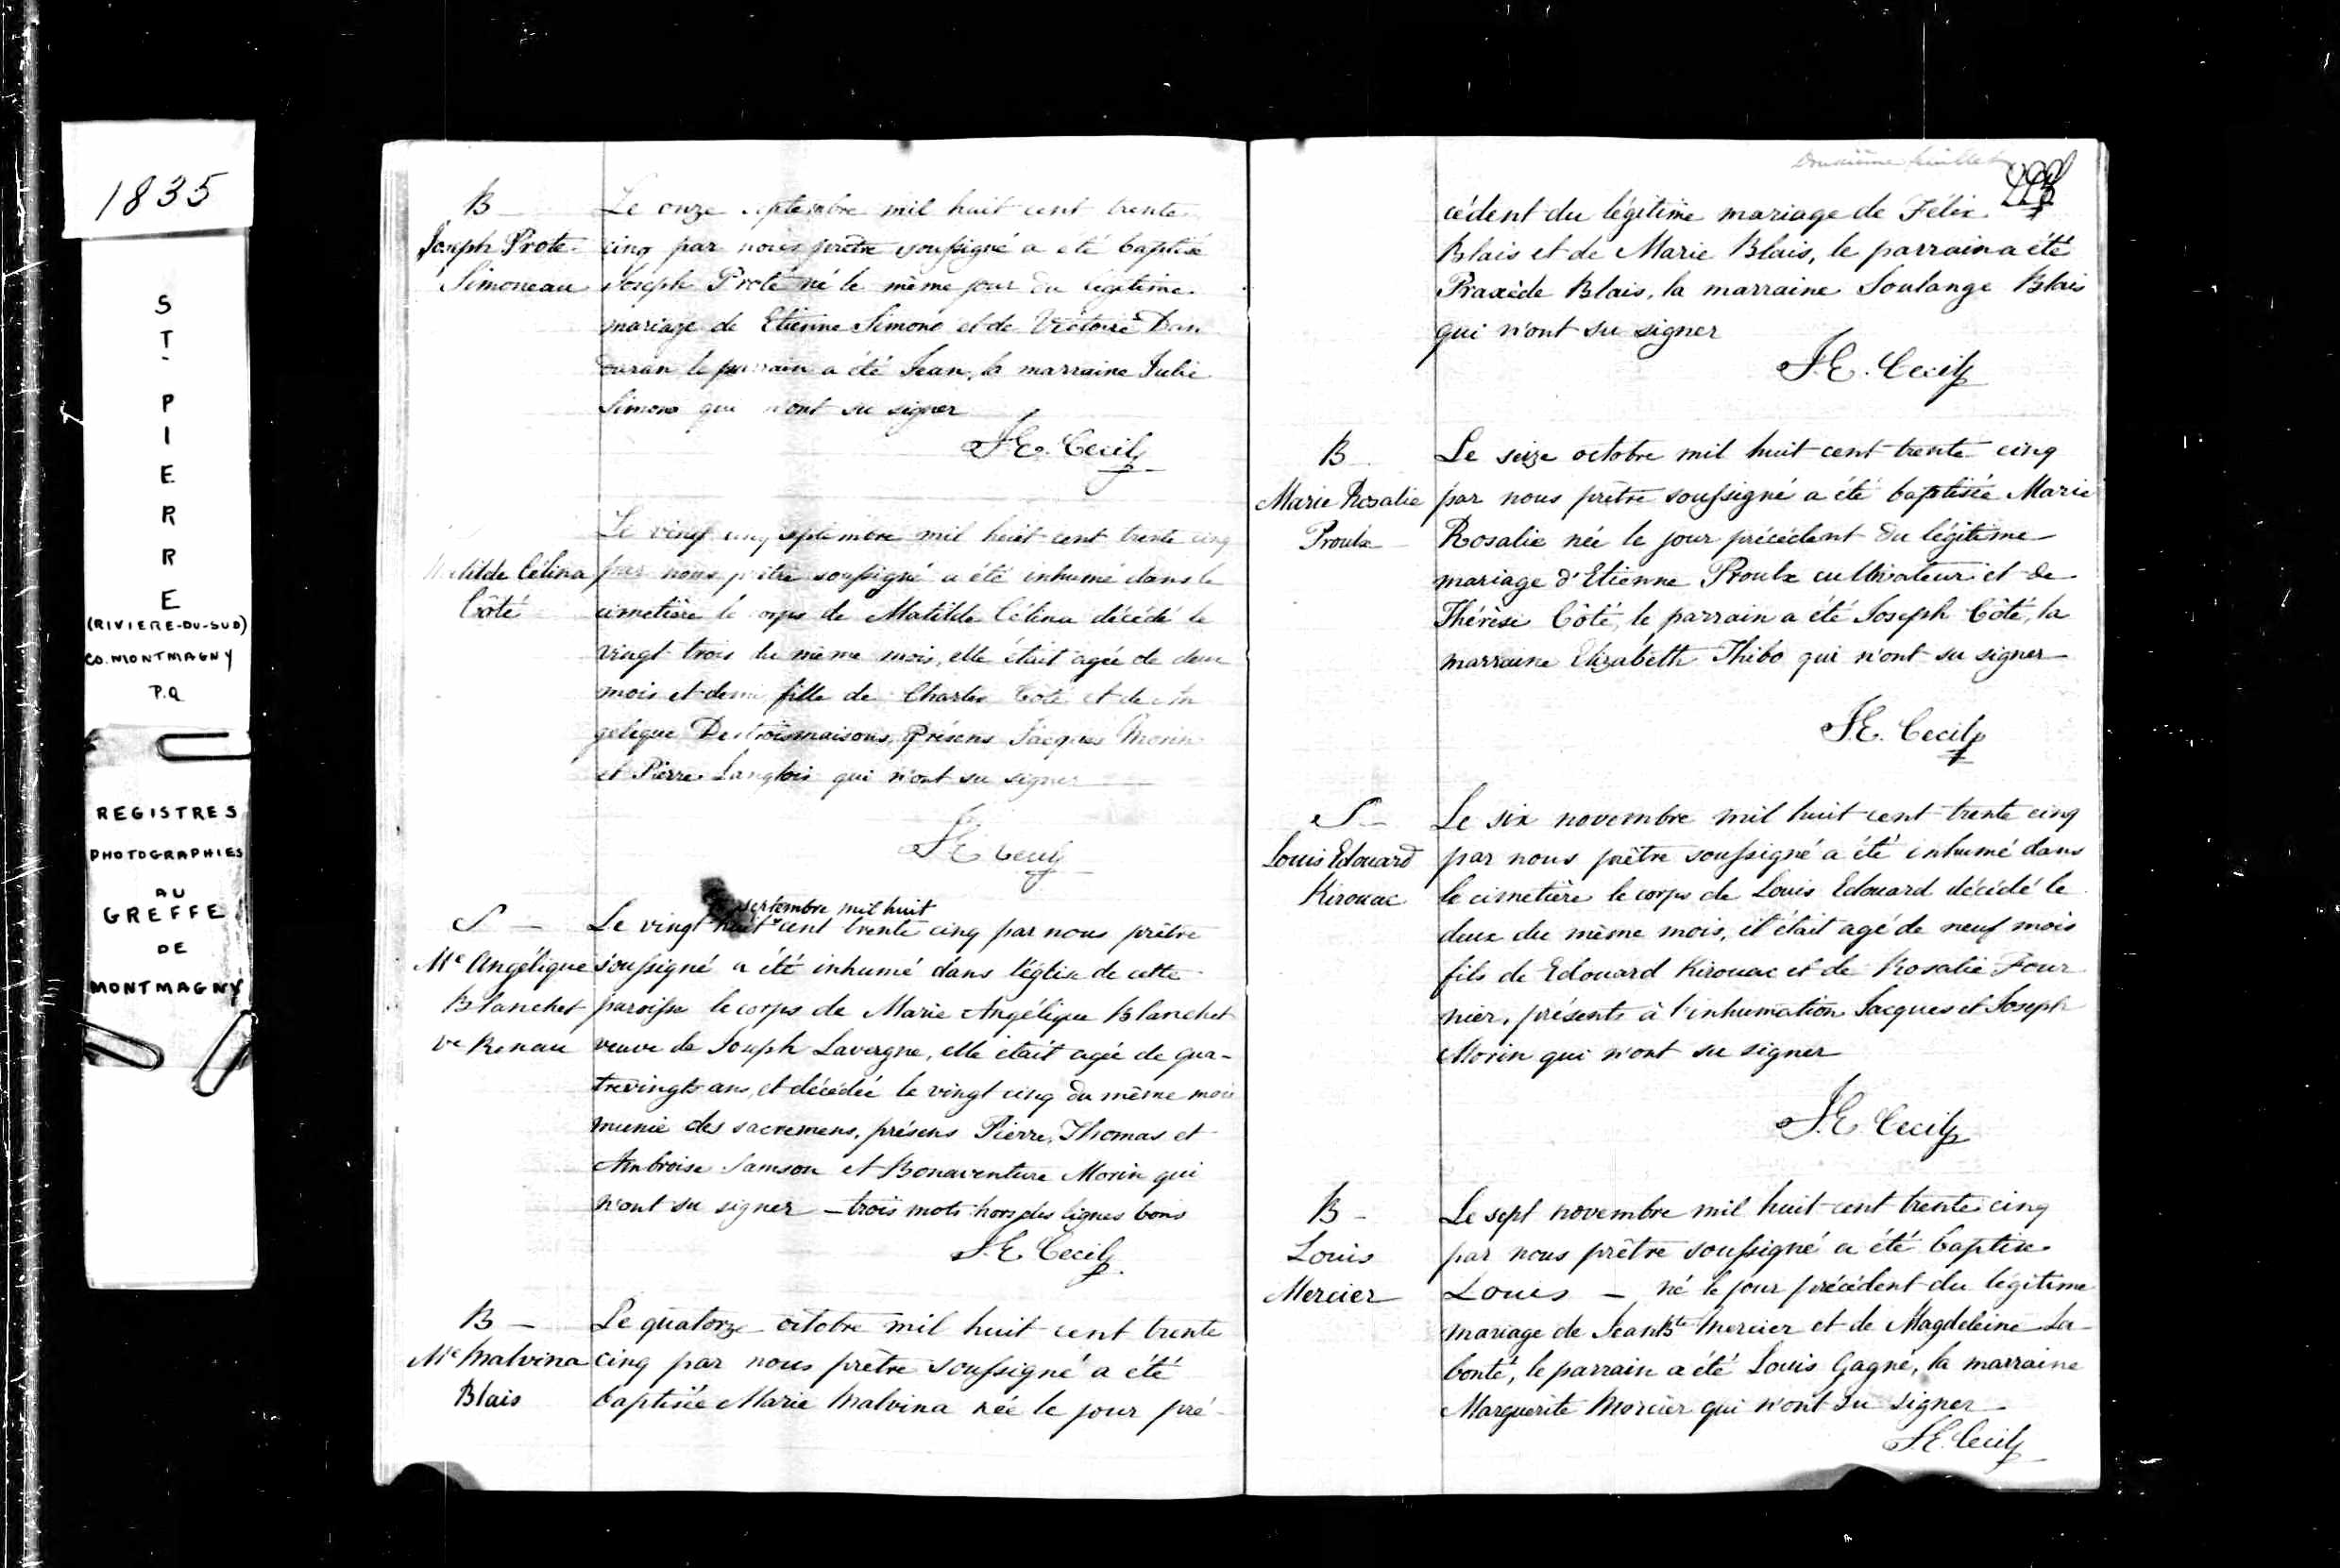 1835
ST-PIERRE
(RIVIERE-DU-SUD)
CO. MONTMAGNY
P.Q
REGISTRES
PHOTOGRAPHIES
AU
GREFFE
DE
MONTMAGNY
B
Joseph Prote
Simoneau
Le onze septembre mil huit cent trente
cinq par nous prêtre soussigné a été baptisé
Joseph Prote né le même jour du légitime
mariage de Etienne Simono et de Victoire Dan
duran le parrain a été Jean, la marraine Julie
Simono qui n'ont su signer
J.E. Cecil
Matilde Célina
Côté
Le vingt cinq septembre mil huit cent trente cinq
par nous prêtre soussigné a été inhumé dans le
cimetière le corps de Matilde Célina décédé le
vingt trois du même mois, elle était agée de deux
mois et demi fille de Charles Coté et de An
gelique Destroismaisons, Présens Jacques Morin
et Pierre Langlois qui n'ont su signer
J.E. Cecil
S
Me Angélique
Blanchet
Ve Renau
septembre mil huit
Le vingt huit cent trente cinq par nous prêtre
soussigné a été inhumé dans l'église de cette
paroisse le corps de Marie Angélique Blanchet
veuve de Joseph Lavergne, elle était agée de qua-
trevingts ans, et décédée le vingt cinq du même mois
munie des sacremens, présens Pierre, Thomas et
Ambroise Samson et Bonaventure Morin qui
n'ont su signer – trois mots hors des lignes bons
J.E. Cecil
B
Me Malvina
Blais
Le quatorze octobre mil huit cent trente
cinq par nous prêtre soussigné a été
baptisée Marie Malvina née le jour pré-
feuillet
cédent du légitime mariage de Félix
Blais et de Marie Blais, le parrain a été
Praxède Blais, la marraine Soulange Blais
qui n'ont su signer
J.E. Cecil
B
Marie Rosalie
Proulx
Le seize octobre mil huit cent trente cinq
par nous prêtre soussigné a été baptisée Marie
Rosalie née le jour précédent du légitime
mariage d'Etienne Proulx cultivateur et de
Thérèse Côté, le parrain a été Joseph Côté, la
marraine Elizabeth Thibo qui n'ont su signer
J.E. Cecil
S
Louis Edouard
Kirouac
Le six novembre mil huit cent trente cinq
par nous prêtre soussigné a été inhumé dans
le cimetière le corps de Louis Edouard décédé le
deux du même mois, il était agé de neuf mois
fils de Edouard Kirouac et de Rosalie Four
nier, présents à l'inhumation Jacques et Joseph
Morin qui n'ont su signer
J.E. Cecil
B
Louis
Mercier
Le sept novembre mil huit cent trente cinq
par nous prêtre soussigné a été baptisé
Louis – né le jour précédent du légitime
mariage de Jean Bte Mercier et de Magdeleine La-
bonté, le parrain a été Louis Gagné, la marraine
Marguerite Mercier qui n'ont su signer
J.E. Cecil